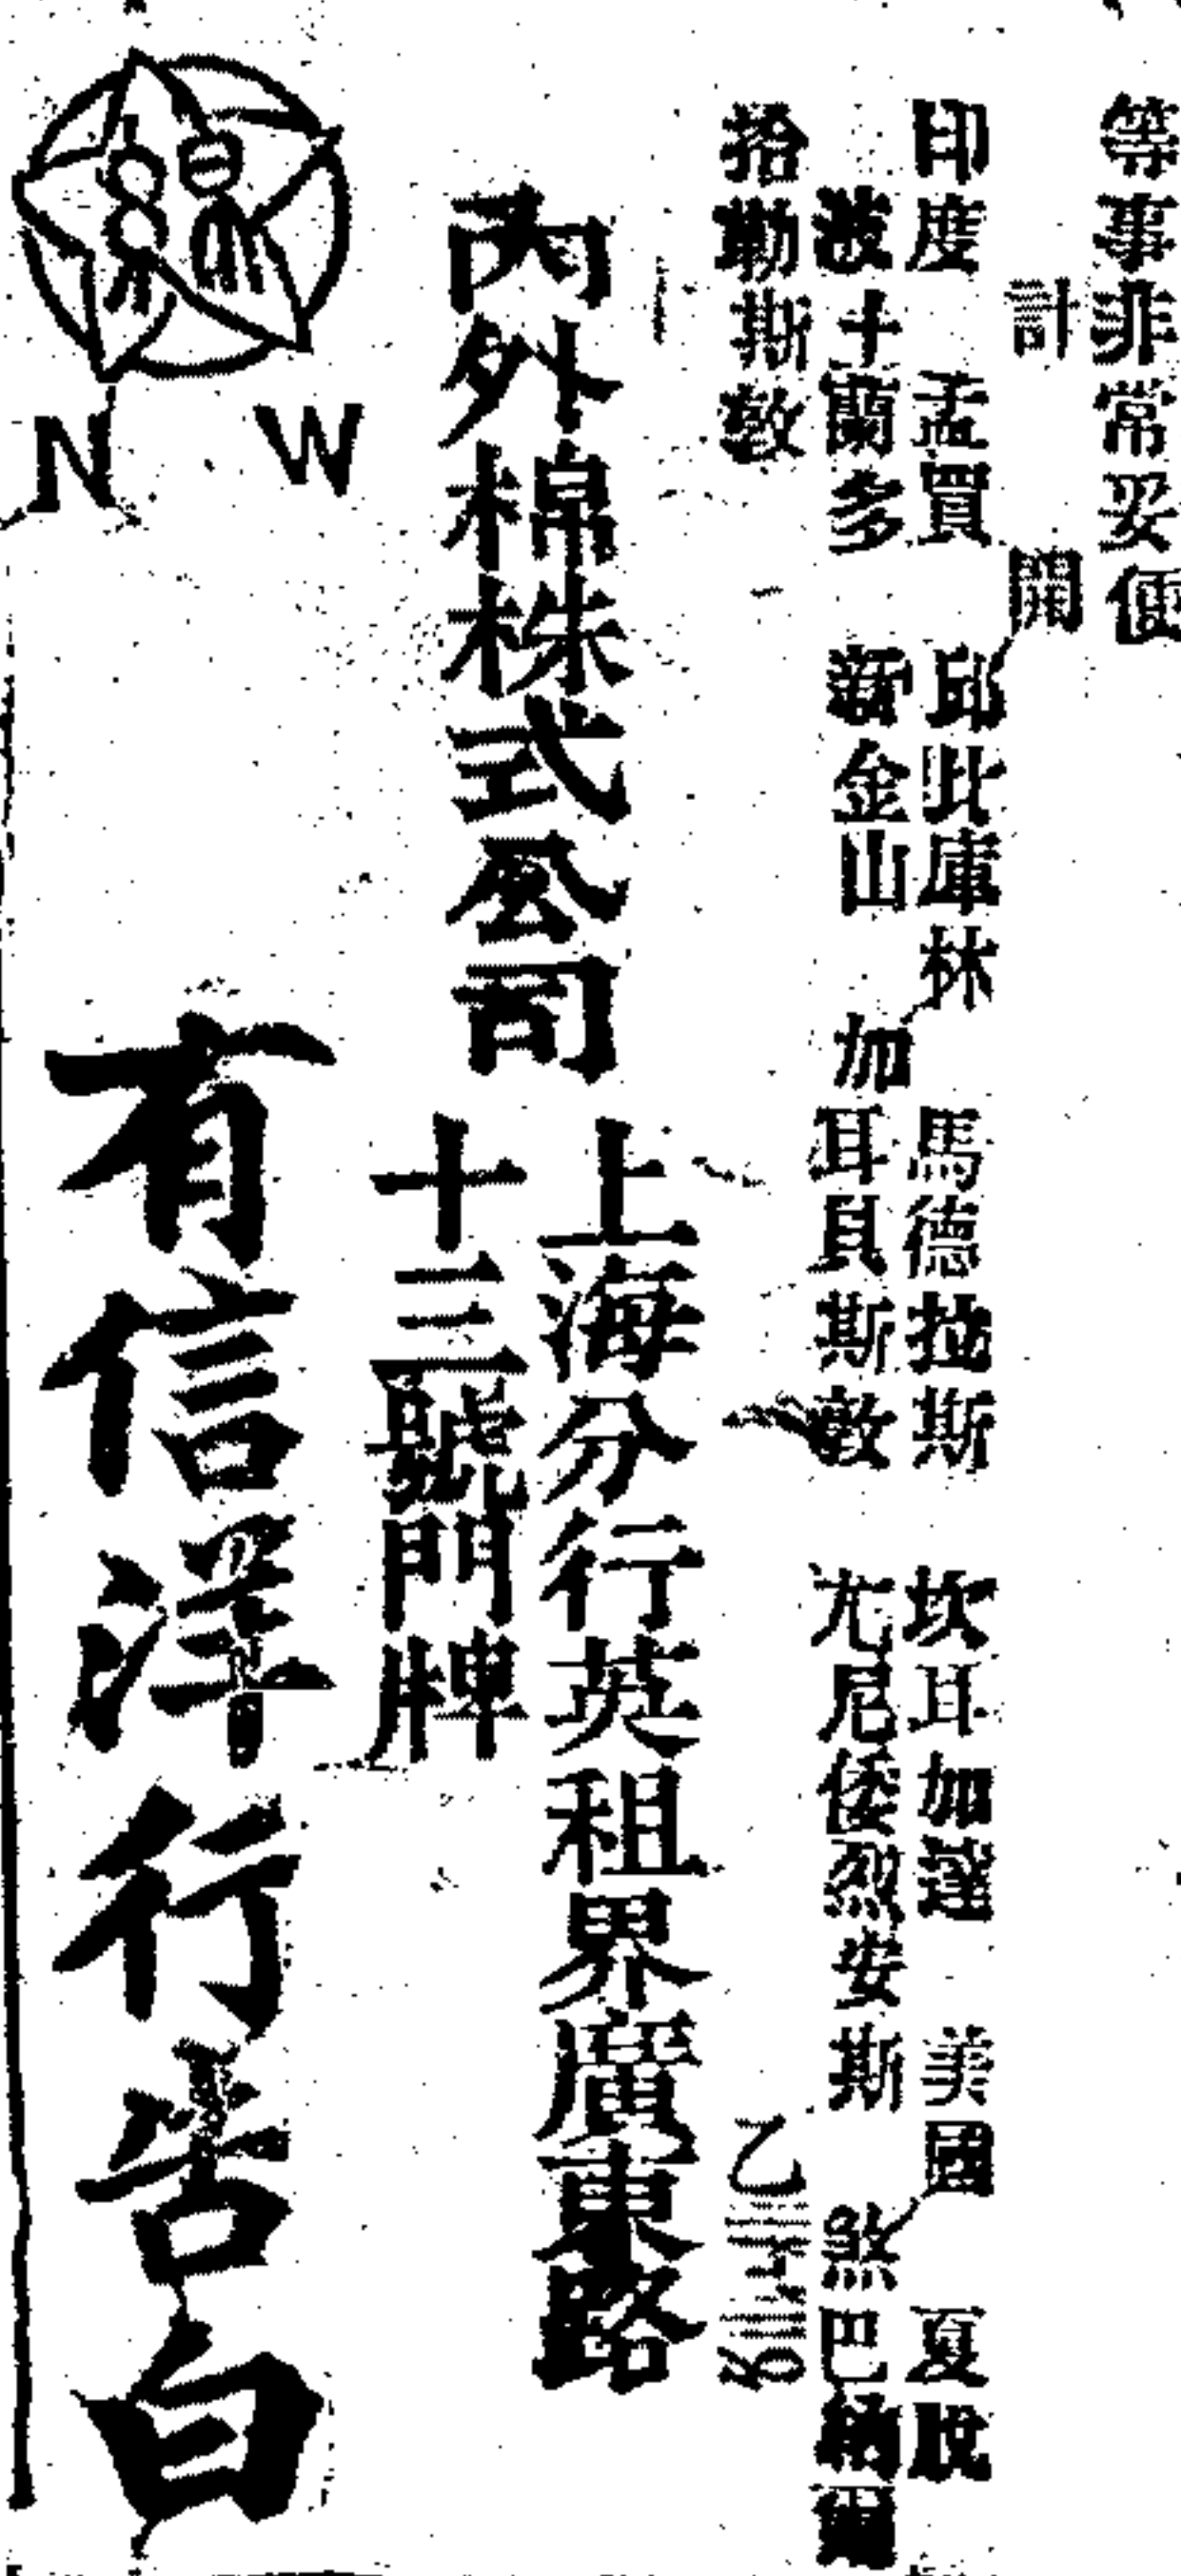 等事非常妥便
計開
印度 孟買 邱此庫林 馬德拉斯 坎耳加達 美國 夏脫
波士蘭多 新金山 加耳貝斯敦 尤尼倭烈安斯 煞巴納爾
拾勒斯敦
內外棉株式公司
上海分行英租界廣東路
十三號門牌
N W
有信洋行告白